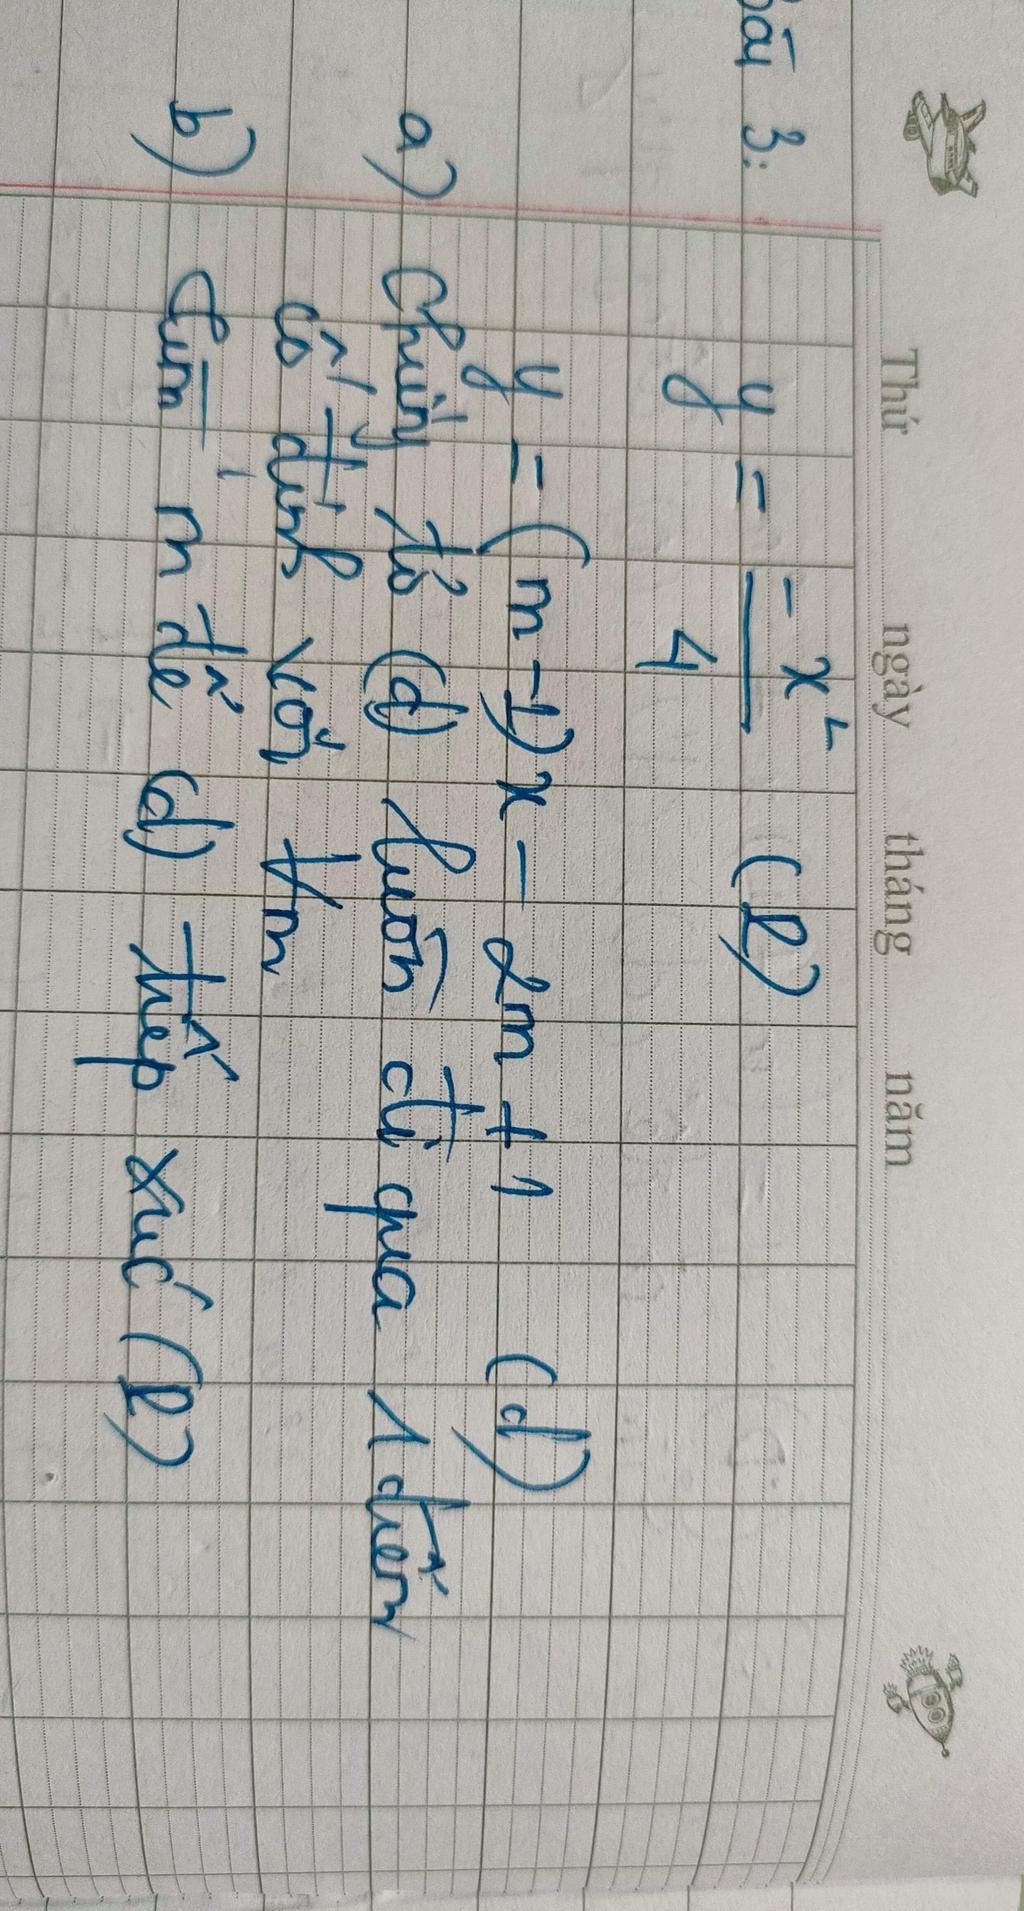 Thứ ngày tháng năm
Bài 3:
y = -x²/4 (P)
y = (m-1)x - 2m + 1 (d)
a) Chứng tỏ (d) luôn đi qua 1 điểm
cố định với ∀m
b) tìm m để (d) tiếp xúc (P)